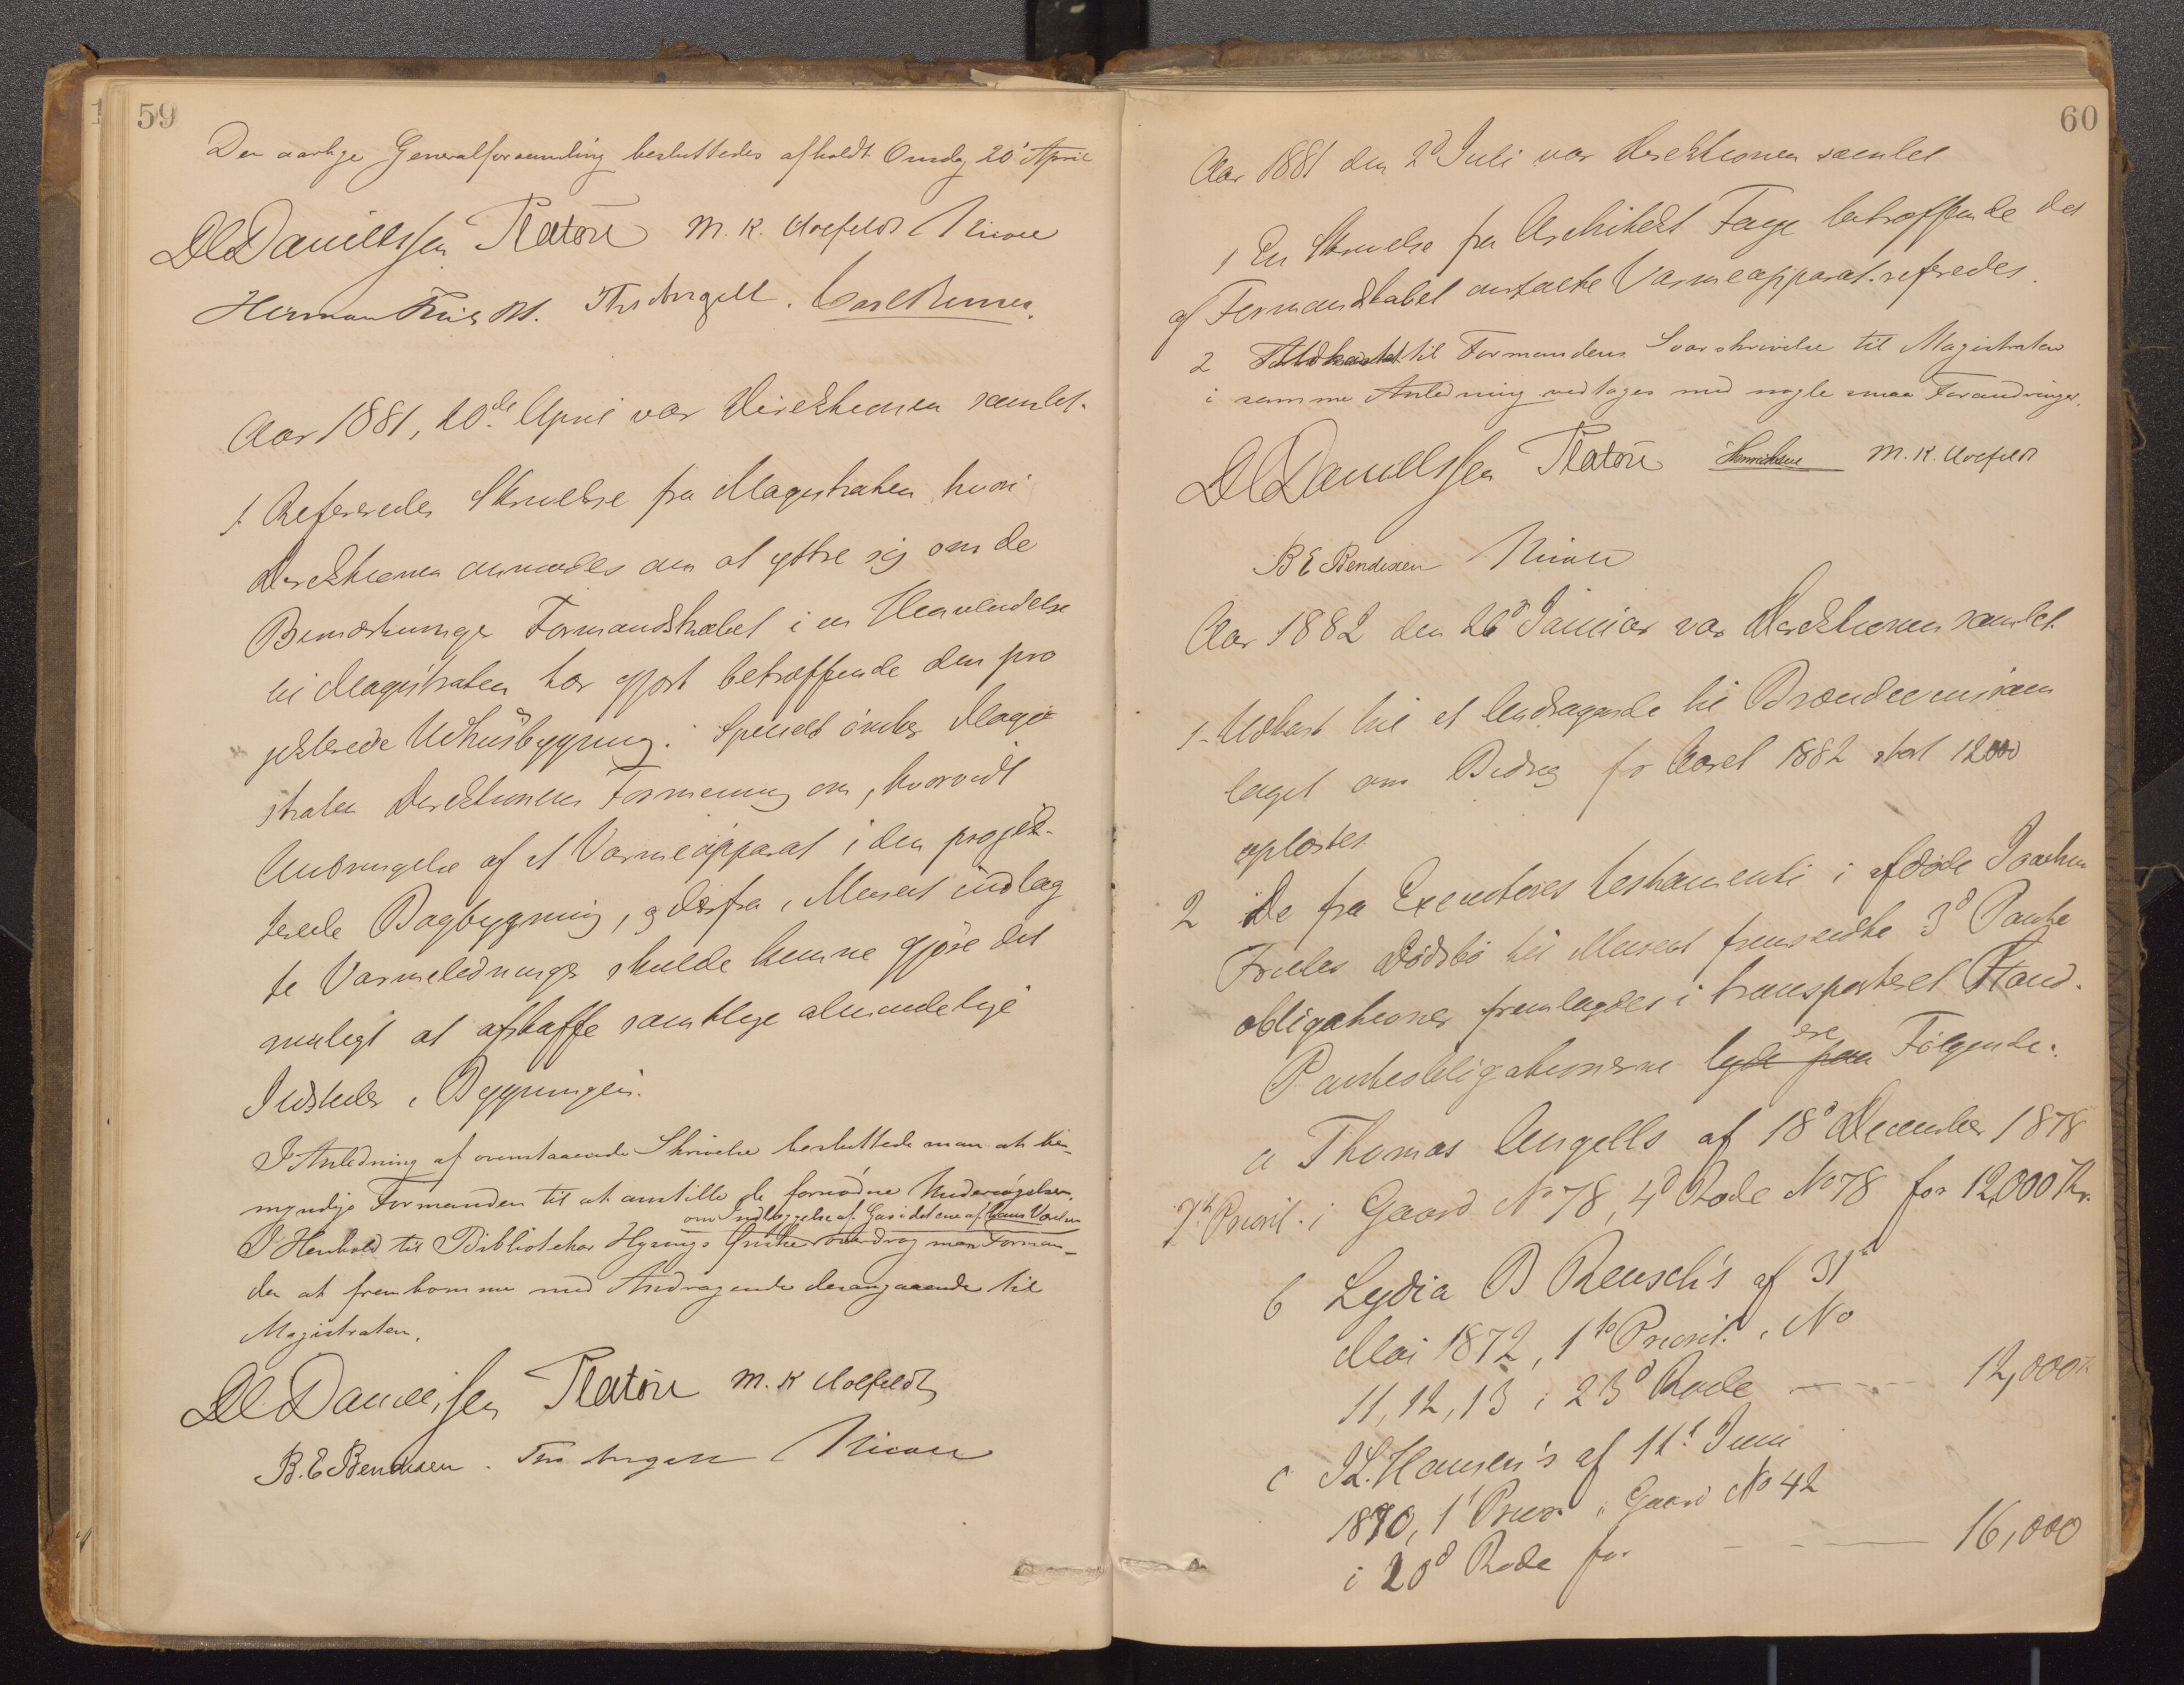 59
Den aarlige Generalforsamling besluttedes afholdt Onsdag 20' April
DCDanielssen Platou M. K. Aarfeldt Nicon
Herman Friis Ths Angell. Carl
Aar 1881, 20de April var Direktionen samlet.
1. Refereredes Skrivelse fra Magistraten hvori
Direktionen anmodes om at yttre sig om de
Bemærkninger Formandskabet i en Henvendelse
til Magistraten har gjort betræffende den pro
jekterede Udhusbygning. Specielt önsker Magi
straten Direktionens Formening om, hvorvidt
Anbringelse af et Varmeapparat i den projek-
terede Bagbygning, og derfra i Museet indlag
te Varmeledninger skulde kunne gjöre det
muligt at afskaffe samtlige almindelige
Ildsteder i Bygningen.
I Anledning af ovenstaaende Skrivelse besluttede man at be-
myndige Formanden til at anstille de fornödne Undersögelser.
om Indlæggelse af Gas i det ene af
I Henhold til Bibliotekar Hysings Önske overdrog man Forman-
den at fremkomme med Andragende desangaaende til
Magistraten.
DCDanielssen Platou M. K Aarfeldt
B. E Bendixen. Ths Angell Nicon
60
Aar 1881 den 2d Juli var Direktionen samlet
1 En Skrivelse fra Architekt Fage betræffende det
af Formandskabet omtalte Varmeapparat refereredes.
2 Udkastet til Formandens Svarskrivelse til Magistraten
i samme Anledning vedtoges med nogle smaa Forandringer.
DCDanielssen Platou Henrichsen M. K. Aarfeldt
B E Bendixen Nicon
Aar 1882 den 26d Januar var Direktionen samlet
1. Udkast til et Andragende til Brændeviinssam
laget om Bidrag for Aaret 1882 stort 12000
oplæstes.
2 De fra Executores testamenti i afdöde Joachim
Frieles Dödsbo til Museet fremsendte 3d Pante
obligationer fremlagdes i transporteret Stand.
ere
Panteobligationerne lyde paa Fölgende:
a Thomas Angells af 18d December 1878
1ste Priorit. i Gaard No 78, 4d Rode No 78 for 12,000 Kr.
b Lydia B Reusch's af 31
Mai 1872, 1te Priorit. i No
11, 12, 13 i 23d Rode ---- 12,000
c J L. Hansen's af 11t Juni
1870, 1' Prior i Gaard No 42
i 20d Rode for - - --- 16,000